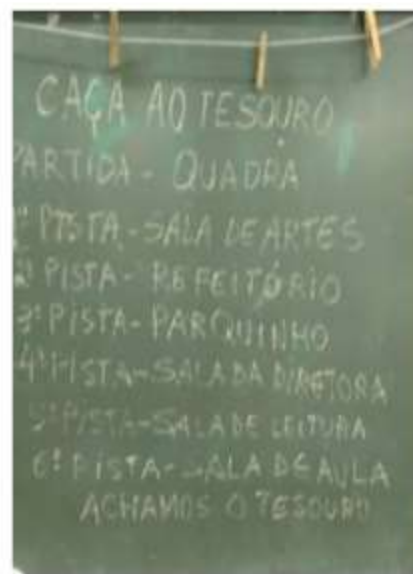 CAÇA AO TESOURO
PARTIDA - QUADRA
1ª PISTA - SALA DE ARTES
2ª PISTA - REFEITÓRIO
3ª PISTA - PARQUINHO
4ª PISTA - SALA DA DIRETORA
5ª PISTA - SALA DE LEITURA
6ª PISTA - SALA DE AULA
ACHAMOS O TESOURO